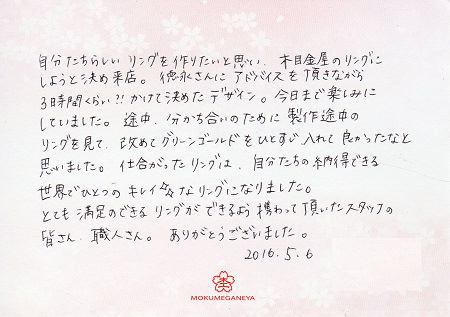 自分たちらしいリングを作りたいと思い、杢目金屋のリングに
しようと決め来店。徳永さんにアドバイスを頂きながら
3時間くらい?!かけて決めたデザイン。今日まで楽しみに
していました。途中、分かち合いのために製作途中の
リングを見て、改めてグリーンゴールドをひとすじ入れて良かったなと
思いました。仕合がったリングは、自分たちの納得できる
世界でひとつのキレイ☆なリングになりました。
とても満足のできるリングができるよう携わって頂いたスタッフの
皆さん、職人さん。ありがとうございました。
2016.5.6
MOKUMEGANEYA